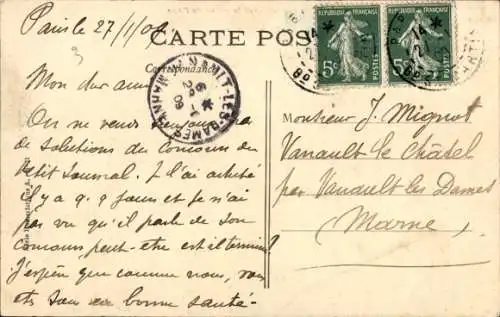 Paris le 27/1/09
CARTE POSTALE
Correspondance
RÉPUBLIQUE FRANÇAISE
RÉPUBLIQUE FRANÇAISE
5c POSTES
5c POSTES
VANAULT-LES-DAMES MARNE
Mon cher ami
On ne vend toujours pas
de solutions du Concours du
Petit Journal. Je l'ai acheté
il y a 9 jours et je n'ai
pas vu qu'il parle de son
concours, peut-être est-il terminé
J'espère que comme nous, vous
êts en bonne santé-
Monsieur J. Mignot
Vanault le Châtel
par Vanault les Dames
Marne